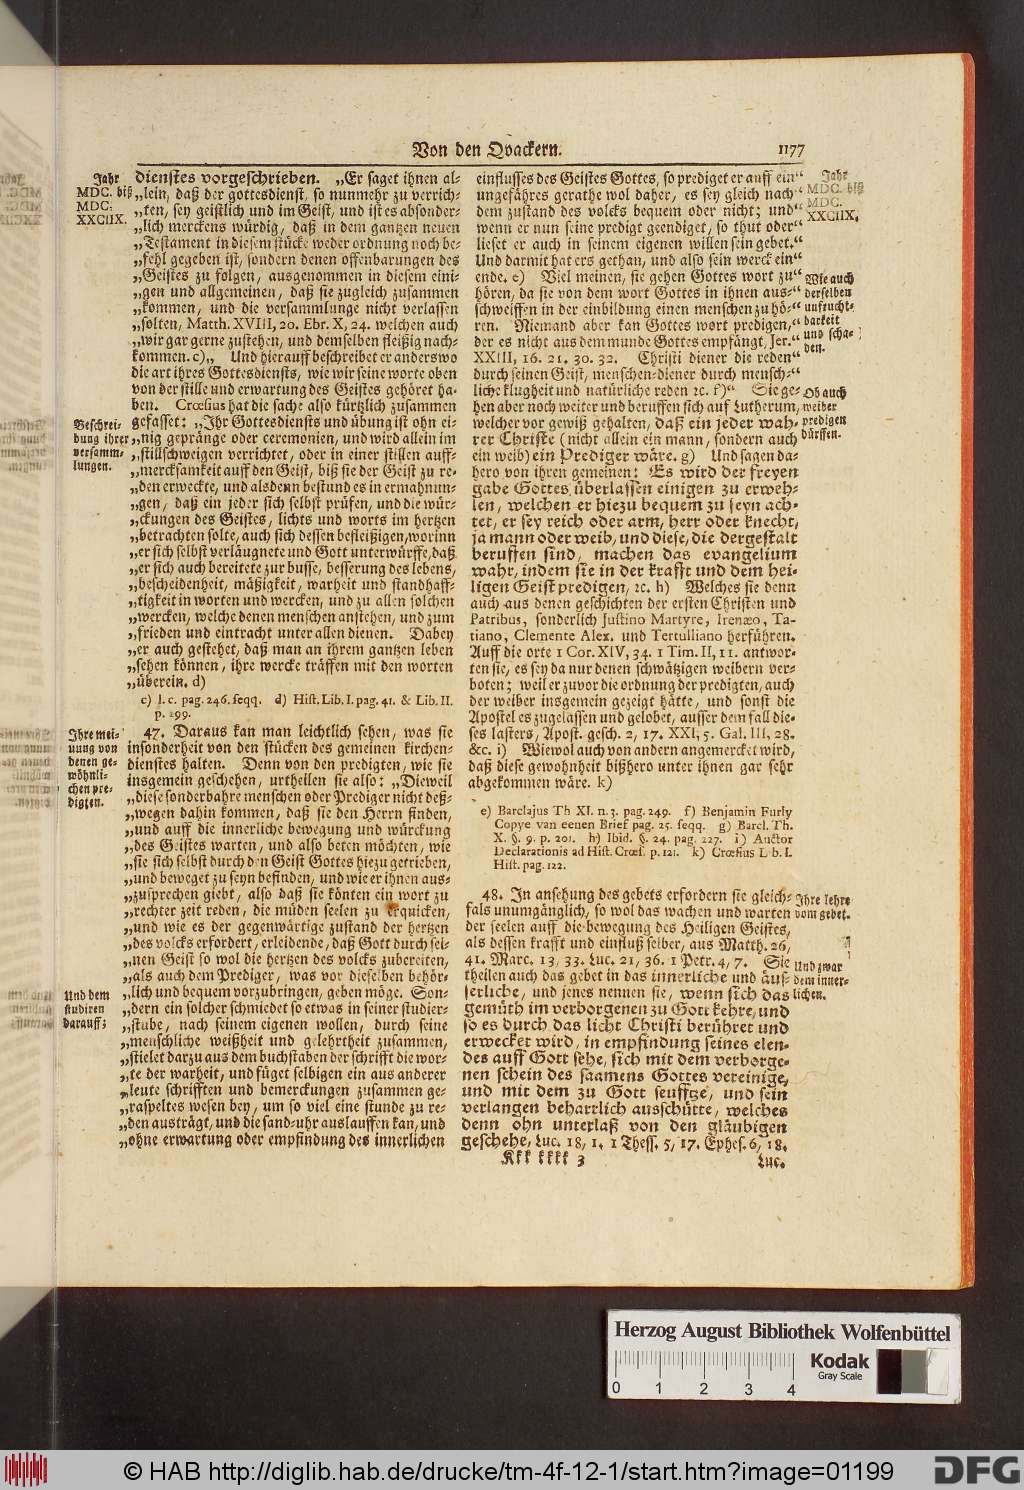 Von den Qvackern.
1177
Jahr
MDC. biß
MDC.
XXCIIX.
dienstes vorgeschrieben. „Er saget ihnen al-
„lein, daß der gottesdienst, so nunmehr zu verrich-
„ten, sey geistlich und im Geist, und ist es absonder-
„lich merckens würdig, daß in dem gantzen neuen
„Testament in diesem stücke weder ordnung noch be-
„fehl gegeben ist, sondern denen offenbarungen des
„Geistes zu folgen, ausgenommen in diesem eini-
„gen und allgemeinen, daß sie zugleich zusammen
„kommen, und die versammlunge nicht verlassen
„solten, Matth. XVIII, 20. Ebr. X, 24. welchen auch
„wir gar gerne zustehen, und demselben fleißig nach-
kommen. c)„ Und hierauff beschreibet er anderswo
die art ihres Gottesdiensts, wie wir seine worte oben
von der stille und erwartung des Geistes gehöret ha-
ben. Crœsius hat die sache also kürtzlich zusammen
gefasset: „Ihr Gottesdiensts und übung ist ohn ei-
„nig gepränge oder ceremonien, und wird allein im
„stillschweigen verrichtet, oder in einer stillen auff-
„mercksamkeit auff den Geist, biß sie der Geist zu re-
„den erweckte, und alsdenn bestund es in ermahnun-
„gen, daß ein jeder sich selbst prüfen, und die wür-
„ckungen des Geistes, lichts und worts im hertzen
„betrachten solte, auch sich dessen befleißigen, worinn
„er sich selbst verläugnete und Gott unterwürffe, daß
„er sich auch bereitete zur busse, besserung des lebens,
„bescheidenheit, mäßigkeit, warheit und standhaff-
„tigkeit in worten und wercken, und zu allen solchen
„wercken, welche denen menschen anstehen, und zum
„frieden und eintracht unter allen dienen. Dabey
„er auch gestehet, daß man an ihrem gantzen leben
„sehen können, ihre wercke träffen mit den worten
„überein. d)
Beschrei-
bung ihrer
versamm-
lungen.
c) l. c. pag. 246. seqq. d) Hist. Lib. I. pag. 41. & Lib. II.
p. 199.
Ihre mei-
nung von
denen ge-
wöhnli-
chen pre-
digten.
47. Daraus kan man leichtlich sehen, was sie
insonderheit von den stücken des gemeinen kirchen-
dienstes halten. Denn von den predigten, wie sie
insgemein geschehen, urtheilen sie also: „Dieweil
„diese sonderbahre menschen oder Prediger nicht deß-
„wegen dahin kommen, daß sie den Herrn finden,
„und auff die innerliche bewegung und würckung
„des Geistes warten, und also beten möchten, wie
„sie sich selbst durch den Geist Gottes hiezu getrieben,
„und beweget zu seyn befinden, und wie er ihnen aus-
„zusprechen giebt, also daß sie könten ein wort zu
„rechter zeit reden, die müden seelen zu erquicken,
„und wie es der gegenwärtige zustand der hertzen
„des volcks erfordert, erleidende, daß Gott durch sei-
„nen Geist so wol die hertzen des volcks zubereiten,
„als auch dem Prediger, was vor dieselben behör-
„lich und bequem vorzubringen, geben möge. Son-
„dern ein solcher schmiedet so etwas in seiner studier-
„stube, nach seinem eigenen wollen, durch seine
„menschliche weißheit und gelehrtheit zusammen,
„stielet darzu aus dem buchstaben der schrifft die wor-
„te der warheit, und füget selbigen ein aus anderer
„leute schrifften und bemerckungen zusammen ge-
„raspeltes wesen bey, um so viel eine stunde zu re-
„den austrägt, und die sand-uhr auslauffen kan, und
„ohne erwartung oder empfindung des innerlichen
Und dem
studiren
darauff;
einflusses des Geistes Gottes, so prediget er auff ein“
ungefähres gerathe wol daher, es sey gleich nach“
dem zustand des volcks bequem oder nicht; und“
wenn er nun seine predigt geendiget, so thut oder“
lieset er auch in seinem eigenen willen sein gebet.“
Und darmit hat ers gethan, und also sein werck ein“
ende. e) Viel meinen, sie gehen Gottes wort zu“
hören, da sie von dem wort Gottes in ihnen aus-“
schweiffen in der einbildung einen menschen zu hö-“
ren. Niemand aber kan Gottes wort predigen,“
der es nicht aus dem munde Gottes empfängt, Jer.“
XXIII, 16. 21. 30. 32. Christi diener die reden“
durch seinen Geist, menschen-diener durch mensch-“
liche klugheit und natürliche reden ꝛc. f)“ Sie ge-
hen aber noch weiter und beruffen sich auf Lutherum,
welcher vor gewiß gehalten, daß ein jeder wah-
rer Christe (nicht allein ein mann, sondern auch
ein weib) ein Prediger wäre. g) Und sagen da-
hero von ihren gemeinen: Es wird der freyen
gabe Gottes überlassen einigen zu erweh-
len, welchen er hiezu bequem zu seyn ach-
tet, er sey reich oder arm, herr oder knecht,
ja mann oder weib, und diese, die dergestalt
beruffen sind, machen das evangelium
wahr, indem sie in der krafft und dem hei-
ligen Geist predigen, ꝛc. h) Welches sie denn
auch aus denen geschichten der ersten Christen und
Patribus, sonderlich Justino Martyre, Irenæo, Ta-
tiano, Clemente Alex. und Tertulliano herführen.
Auff die orte 1 Cor. XIV, 34. 1 Tim. II, 11. antwor-
ten sie, es sey da nur denen schwätzigen weibern ver-
boten; weil er zuvor die ordnung der predigten, auch
der weiber insgemein gezeigt hätte, und sonst die
Apostel es zugelassen und gelobet, ausser dem fall die-
ses lasters, Apost. gesch. 2, 17. XXI, 5. Gal. III, 28.
&c. i) Wiewol auch von andern angemercket wird,
daß diese gewohnheit bißhero unter ihnen gar sehr
abgekommen wäre. k)
Jahr
MDC. biß
MDC.
XXCIIX.
Wie auch
derselben
unfrucht-
barkeit
und scha-
den.
Ob auch
weiber
predigen
dürffen.
e) Barclajus Th XI. n. 3. pag. 249. f) Benjamin Furly
Copye van eenen Brief pag. 25. seqq. g) Barcl. Th.
X. §. 9. p. 201. h) Ibid. §. 24. pag. 227. i) Auctor
Declarationis ad Hist. Crœs. p. 121. k) Crœsius Lib. I.
Hist. pag. 122.
48. In ansehung des gebets erfordern sie gleich-
fals unumgänglich, so wol das wachen und warten
der seelen auff die bewegung des Heiligen Geistes,
als dessen krafft und einfluß selber, aus Matth. 26,
41. Marc. 13, 33. Luc. 21, 36. 1 Petr. 4, 7. Sie
theilen auch das gebet in das innerliche und äus-
serliche, und jenes nennen sie, wenn sich das
gemüth im verborgenen zu Gott kehre, und
so es durch das licht Christi berühret und
erwecket wird, in empfindung seines elen-
des auff Gott sehe, sich mit dem verborge-
nen schein des saamens Gottes vereinige,
und mit dem zu Gott seufftze, und sein
verlangen beharrlich ausschütte, welches
denn ohn unterlaß von den gläubigen
geschehe, Luc. 18, 1. 1 Thess. 5, 17. Ephes. 6, 18.
Ihre lehre
vom gebet.
Und zwar
dem inner-
lichen.
Kkk kkkk 3
Luc.
Herzog August Bibliothek Wolfenbüttel
0 1 2 3 4
Kodak
Gray Scale
© HAB http://diglib.hab.de/drucke/tm-4f-12-1/start.htm?image=01199
DFG